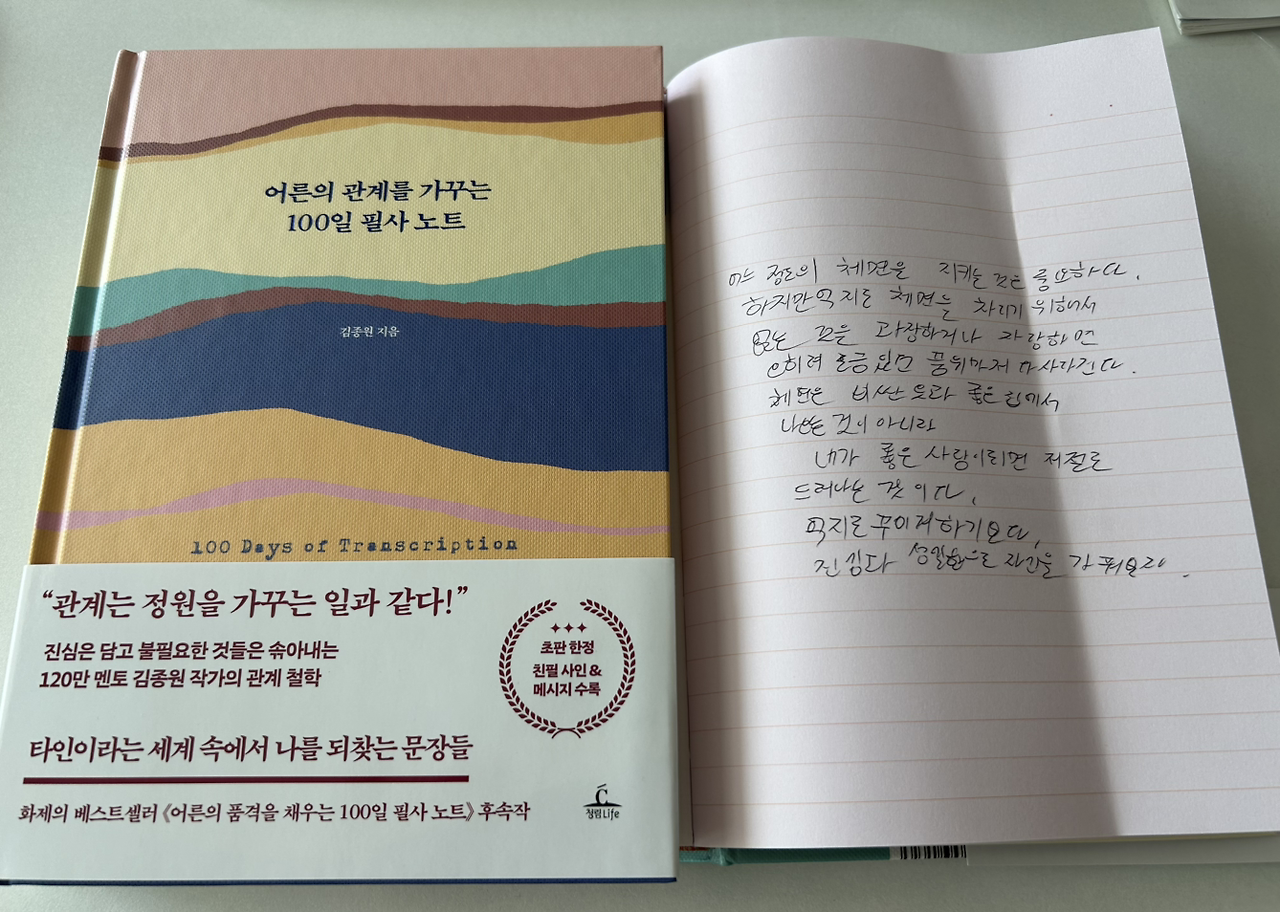 어른의 관계를 가꾸는
100일 필사 노트
김종원 지음
100 Days of Transcription
“관계는 정원을 가꾸는 일과 같다!”
진심은 담고 불필요한 것들은 솎아내는
120만 멘토 김종원 작가의 관계 철학
초판 한정
친필 사인 &
메시지 수록
타인이라는 세계 속에서 나를 되찾는 문장들
화제의 베스트셀러 《어른의 품격을 채우는 100일 필사 노트》 후속작
청림Life
어느 정도의 체면을 지키는 것은 중요하다.
하지만 억지로 체면을 차리기 위해서
없는 것을 과장하거나 자랑하면
오히려 조금 있던 품위마저 다 사라진다.
체면은 비싼 옷과 좋은 집에서
나오는 것이 아니라
내가 좋은 사람이라면 저절로
드러나는 것이다.
억지로 꾸미려 하기보다,
진심과 성실함으로 시간을 가